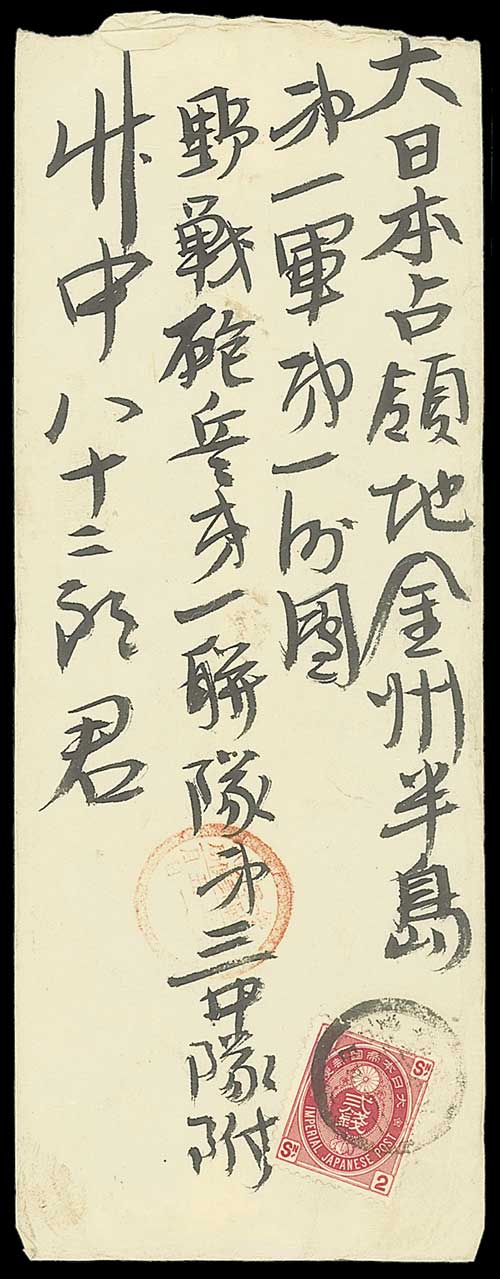 大日本占領地金州半島
第一軍第一師團
野戦砲兵第一聯隊第三中隊附
竹中八十二郎君
大日本帝国郵便
弐銭
IMPERIAL JAPANESE POST
Sn
Sn
2